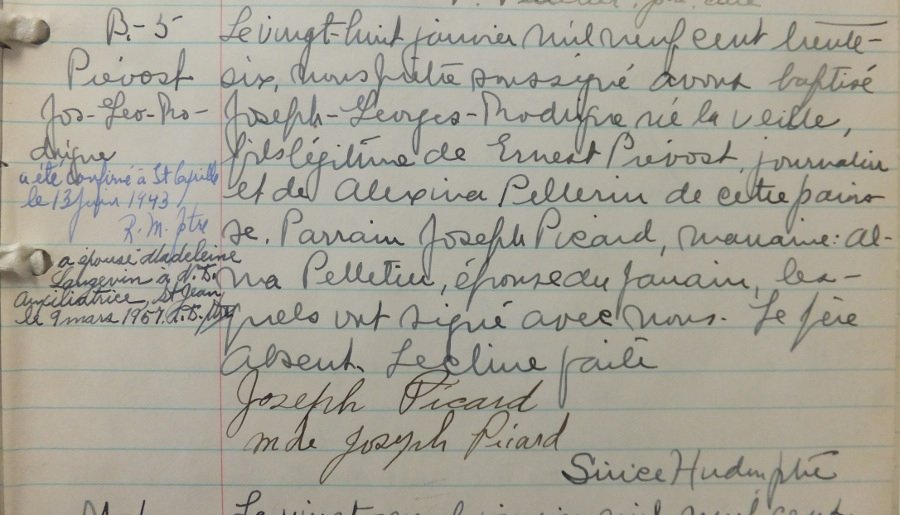 B.-5
Prévost
Jos-Geo-Ro-
drigue
a été confirmé à St Cyrille
le 13 juin 1943
R. M. ptre
a épousé Madeleine
Langevin à N. D.
Auxiliatrice, St Jean,
le 9 mars 1957.
Le vingt-huit janvier mil neuf cent trente-
six, nous prêtre soussigné avons baptisé
Joseph-Georges-Rodrigue né la veille,
fils légitime de Ernest Prévost, journalier
et de Alexina Pellerin de cette parois-
se. Parrain Joseph Picard, marraine: Al-
ma Pelletier, épouse du parrain, les-
quels ont signé avec nous. Le père
absent. Lecture faite
Joseph Picard
mde Joseph Picard
ptre
Le vingt janvier mil neuf cent